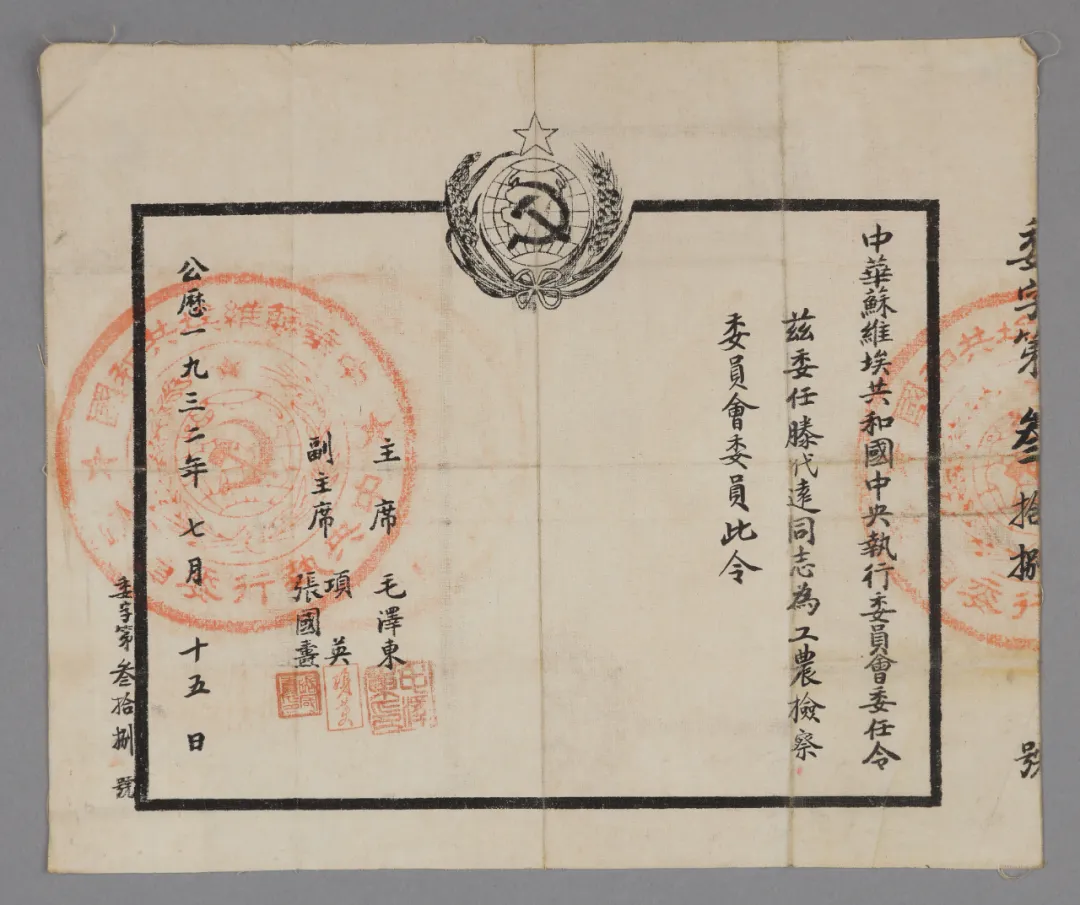 委字第叁拾捌號
中華蘇維埃共和國中央執行委員會委任令
茲委任滕代遠同志為工農檢察
委員會委員此令
主席 毛澤東
副主席 項英
張國燾
公曆一九三二年七月十五日
委字第叁拾捌號